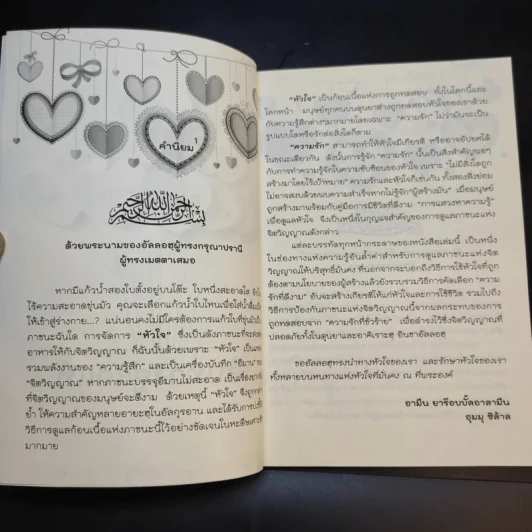 คำนิยม 1
بسم الله الرحمن الرحيم
ด้วยพระนามของอัลลอฮฺผู้ทรงกรุณาปรานี
ผู้ทรงเมตตาเสมอ
หากมีแก้วน้ำสองใบตั้งอยู่บนโต๊ะ ใบหนึ่งสะอาดใส
ไร้ความสะอาดขุ่นมัว คุณจะเลือกแก้วน้ำใบไหนเพื่อใส่น้ำดื่ม
ให้เข้าสู่ร่างกาย...? แน่นอนคงไม่มีใครต้องการแก้วใบที่ขุ่นมัว
ภาชนะฉันใด การจัดการ "หัวใจ" ซึ่งเป็นดั่งภาชนะที่จะส่ง
อาหารให้กับจิตวิญญาณ ก็ฉันนั้นด้วยเพราะ "หัวใจ" เป็นแหล่ง
รวมพลังงานของ "ความรู้สึก" และเป็นเครื่องบันทึก "อีมาน"
"จิตวิญญาณ" หากภาชนะบรรจุอีมานไม่สะอาด เป็นเรื่องยาก
ที่จิตวิญญาณของมนุษย์จะดีงาม ด้วยเหตุนี้ "หัวใจ" จึงถูก
ย้ำ ให้ความสำคัญหลายอายะฮฺในอัลกุรอาน และได้รับการ
วิธีการดูแลก้อนเนื้อแห่งภาชนะนี้ไว้อย่างชัดเจนในหะดีษ
มากมาย
"หัวใจ" เป็นก้อนเนื้อแห่งการถูกทดสอบ ทั้งในโลกนี้และ
โลกหน้า มนุษย์ทุกคนบนดุนยาต่างถูกทดสอบหัวใจของเขาด้วย
กับความรู้สึกต่างๆมากมายโดยเฉพาะ "ความรัก" ไม่ว่ามันจะเป็น
รูปแบบใดหรือรักต่อสิ่งใดก็ตาม
"ความรัก" สามารถทำให้หัวใจมีเกียรติ หรืออาจอัปยศได้
ในขณะเดียวกัน ดังนั้นการรู้จัก "ความรัก" นั้นเป็นสิ่งสำคัญพอๆ
กับการทำความรู้จักในความซับซ้อนของหัวใจ เพราะ "ไม่มีสิ่งใดถูก
สร้างมาโดยไร้เป้าหมาย" ความรักและหัวใจก็เช่นกัน ทั้งสองสิ่งย่อม
ไม่อาจสงบด้วยบนความสำเร็จหากไม่รู้จัก"ผู้สร้างมัน" เมื่อมนุษย์
ถูกสร้างมาพร้อมกับคู่มือการมีชีวิตที่ดีงาม "การแสวงหาความรู้"
เพื่อดูแลหัวใจ จึงเป็นหนึ่งในกุญแจสำคัญของการดูแลภาชนะแห่ง
จิตวิญญาณดังกล่าว
แต่ละบรรทัดทุกหน้ากระดาษของหนังสือเล่มนี้ เป็นหนึ่ง
ในช่องทางแห่งความรู้อันล้ำค่าสำหรับการดูแลภาชนะแห่งจิต
วิญญาณให้บริสุทธิ์มั่นคง ที่นอกจากจะบอกถึงวิธีการใช้หัวใจที่ถูก
ต้องตามนโยบายของผู้สร้างแล้วยังรวบรวมวิธีการคัดเลือก "ความ
รักที่ดีงาม" อันจะสร้างเกียรติให้แก่หัวใจและการใช้ชีวิต รวมไปถึง
วิธีการป้องกันภาชนะแห่งจิตวิญญาณนี้จากผลกระทบของการ
ถูกทดสอบจาก "ความรักที่ชั่วร้าย" เพื่อดำรงไว้ซึ่งจิตวิญญาณที่
ปลอดภัยทั้งในดุนยาและอาคิเราะฮฺ อินชาอัลลอฮฺ
ขออัลลอฮฺทรงนำทางหัวใจของเรา และรักษาหัวใจของเรา
ทั้งหลายบนหนทางแห่งหัวใจที่มั่นคง ณ ที่พระองค์
อามีน ยาร็อบบั้ลอาลามีน
อุมมุ ซิล้าล